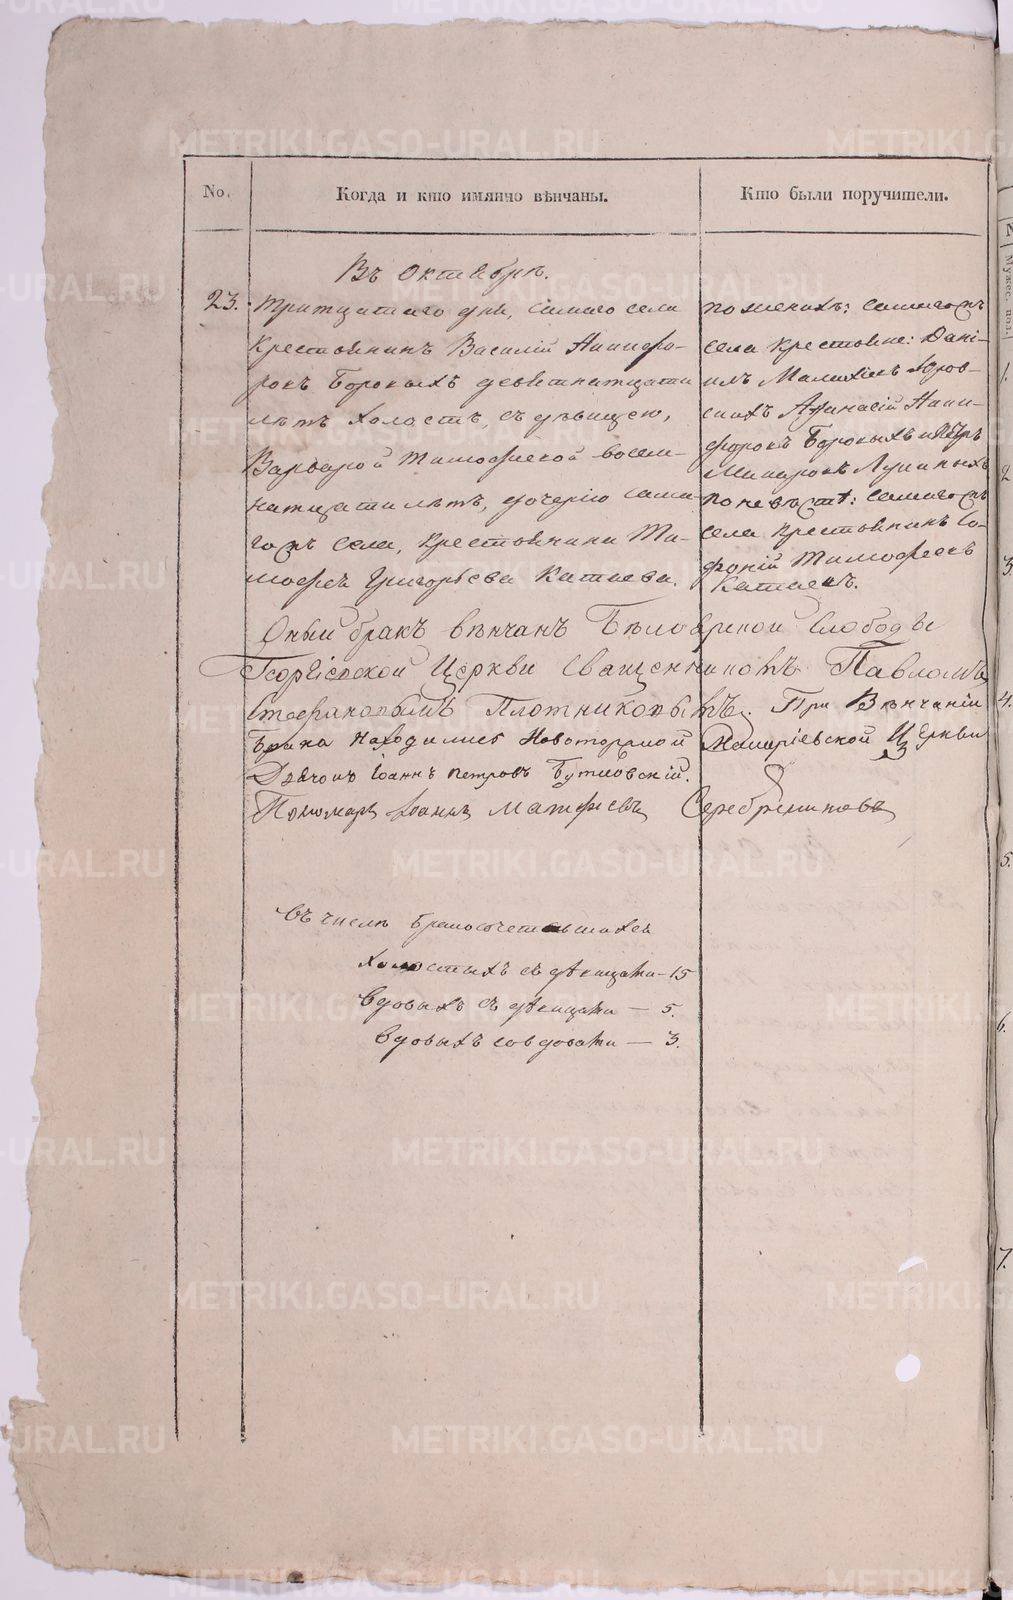 No.
Когда и кто имянно вѣнчаны.
Кто были поручители.
Въ Октябрѣ.
23. тритцатаго дня, самаго села
крестьянинъ Василій Ники
ровъ Боровыхъ девятнатцати
лѣтъ холостъ, съ дѣвицею,
Варварой Тимофеевой восем-
натцати лѣтъ, дочерію сама-
гожъ села, крестьянина Ти-
мофея Григорьева Катаева.
по женихѣ: самагожъ
села крестьяне: Дані-
илъ
Афанасій Ники-
форовъ Боровыхъ и Петръ
по невѣстѣ: самагожъ
села крестьянинъ Со-
фоній Тимофеевъ
Катаевъ.
Оный бракъ вѣнчанъ Бѣлоярской Слободы
Георгіевской Церкви Священникомъ Павломъ
Стефановымъ Плотниковымъ. При Вѣнчаніи
брака находились Новоторжской Церкви
Дьячокъ Іоаннъ Петровъ Бутковскій.
Пономарь Іоаннъ Матфеевъ Серебрениковъ
Въ числѣ бракосочетавшихся
холостыхъ съ дѣвицами - 15
вдовыхъ съ дѣвицами — 5.
вдовыхъ со вдовами — 3.
1.
2
3.
4.
5.
6.
7.
METRIKI.GASO-URAL.RU